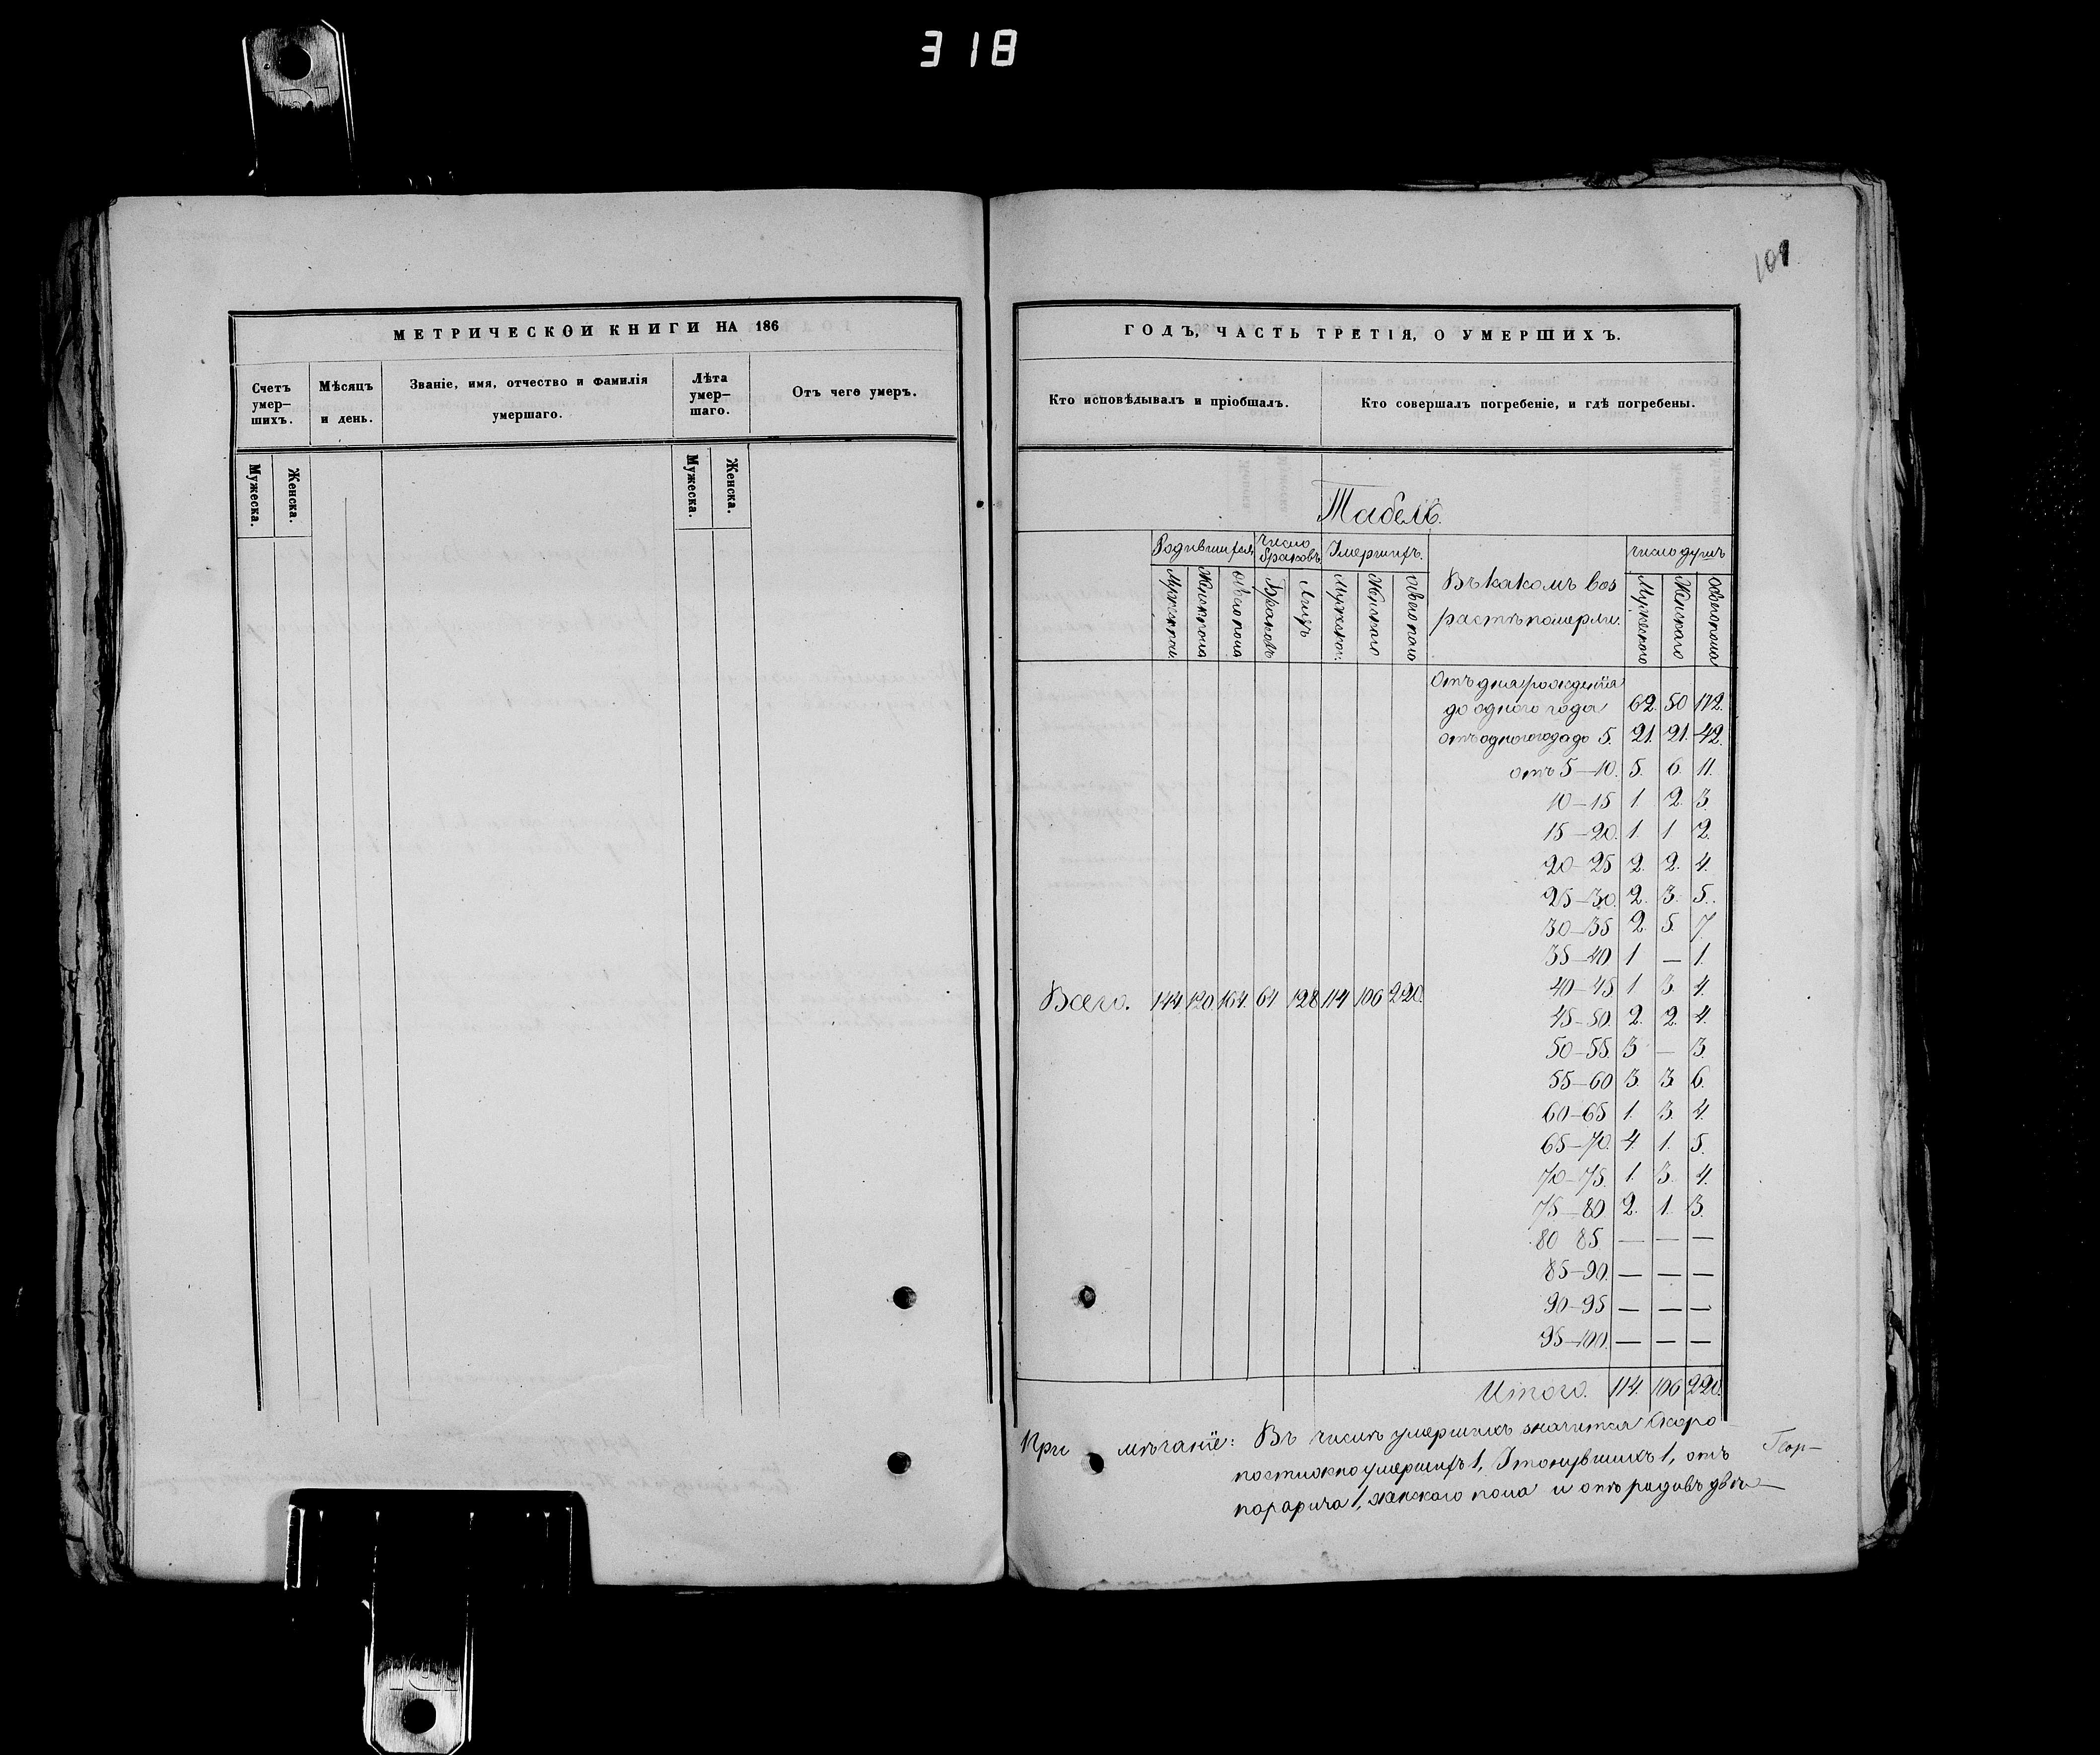 318
101
МЕТРИЧЕСКОЙ КНИГИ НА 186
Счетъ умер-шихъ.
Мѣсяцъ и день.
Званіе, имя, отчество и фамилія умершаго.
Лѣта умер-шаго.
Отъ чего умеръ.
Мужеска.
Женска.
Мужеска.
Женска.
ГОДЪ, ЧАСТЬ ТРЕТІЯ, О УМЕРШИХЪ.
Кто исповѣдывалъ и пріобщалъ.
Кто совершалъ погребеніе, и гдѣ погребены.
Табель.
Родившихся
Число браковъ
Умершихъ.
Въ какомъ воз
растѣ померли.
число душъ
Женскпола
обоегопола
Браковъ
Лицъ
Женского
обоего пола
Мужеского
Женскаго
Обоегопола
Отъ дня рожденія
до одного года 62. 50 112.
отъ одного года до 5. 21. 21. 42.
отъ 5—10. 5. 6. 11.
10—15 1 2. 3.
15—20. 1. 1 2.
20—25 2. 2. 4.
25—30. 2. 3. 5.
30—35 2. 5. 7
35—40 1 — 1.
Всего. 144 120. 164. 64. 128 114 106 220.
40—45 1 3. 4.
45—50. 2. 2. 4.
50—55. 3 — 3.
55—60 3. 3. 6.
60—65 1. 3. 4.
65—70. 4. 1. 5.
70—75. 1. 3. 4.
75—80. 2. 1. 3.
80 85 — — —
85—90. — — —
90—95 — — —
95—100. — — —
Итого. 114. 106 220.
Примѣчаніе: Въ числѣ умершихъ значится Скоро
постижно умершихъ 1, Утонувшихъ 1, отъ
паралича 1, женскаго пола и отъ родовъ двѣ